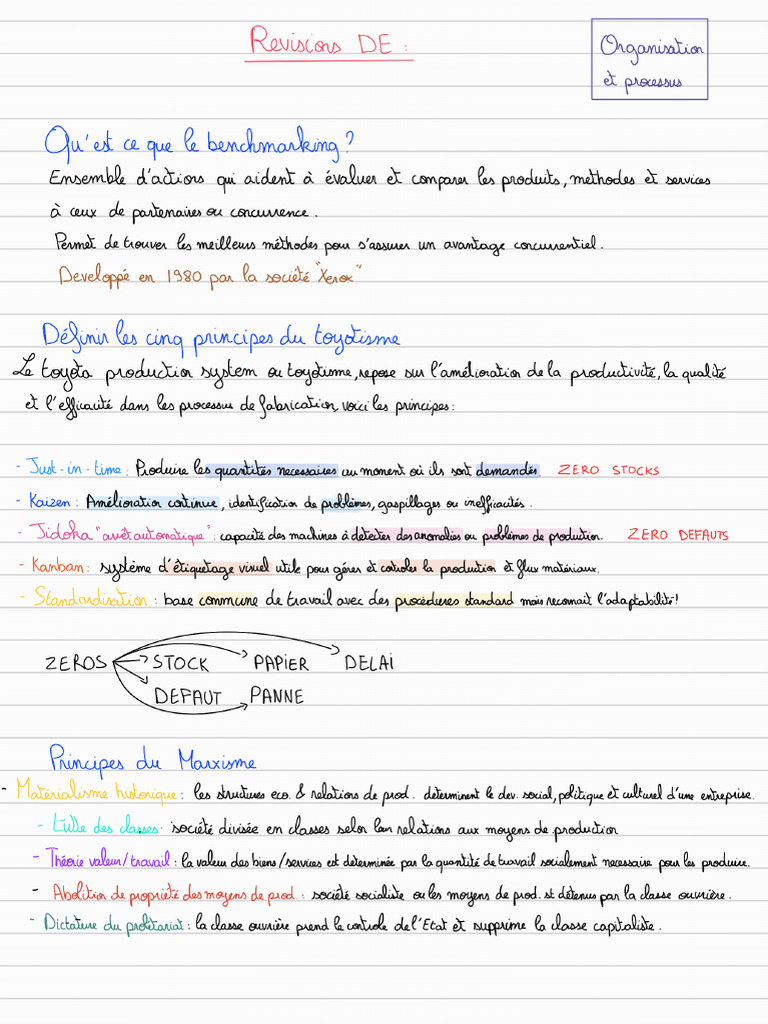 Revisions DE :
Organisation
et processus
Qu'est ce que le benchmarking ?
Ensemble d'actions qui aident à évaluer et comparer les produits, méthodes et services
à ceux de partenaires ou concurrence.
Permet de trouver les meilleurs méthodes pour s'assurer un avantage concurrentiel.
Developpé en 1980 par la société "Xerox"
Définir les cinq principes du toyotisme
Le toyota production system ou toyotisme, repose sur l'amélioration de la productivité, la qualité
et l'efficacité dans les processus de fabrication, voici les principes :
- Just-in-time : Produire les quantités necessaires au moment où ils sont demandés. ZERO STOCKS
- Kaizen : Amélioration continue, identification de problèmes, gaspillages ou inefficacités.
- Jidoka "arrêt automatique" : capacité des machines à détecter des anomalies ou problèmes de production. ZERO DEFAUTS
- Kanban : système d'étiquetage visuel utile pour gérer et controler la production et flux matériaux.
- Standardisation : base commune de travail avec des procédures standard mais reconnait l'adaptabilité !
ZEROS STOCK PAPIER DELAI
DEFAUT PANNE
Principes du Marxisme
- Matérialisme historique : les structures eco. & relations de prod. determinent le dev. social, politique et culturel d'une entreprise.
- Lutte des classes : société divisée en classes selon leur relations aux moyens de production
- Théorie valeur/travail : la valeur des biens/services est determinée par la quantité de travail socialement necessaire pour les produire.
- Abolition de propriété des moyens de prod : société socialiste ou les moyens de prod. st détenus par la classe ouvrière.
- Dictature du prolétariat : la classe ouvrière prend le controle de l'Etat et supprime la classe capitaliste.